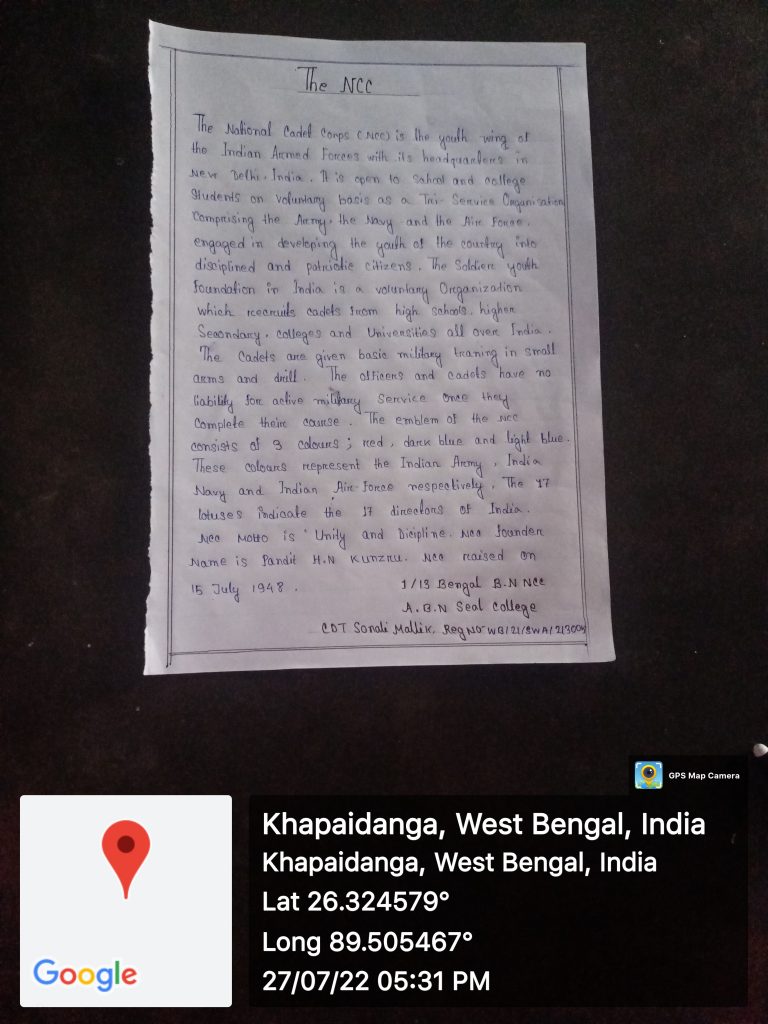 The NCC
The National Cadet Corps (NCC) is the youth wing of
the Indian Armed Forces with its headquarters in
New Delhi, India. It is open to school and college
Students on voluntary basis as a Tri-Service Organisation
Comprising the Army, the Navy and the Air Force.
engaged in developing the youth of the country into
disciplined and patriotic citizens. The Soldier youth
foundation in India is a voluntary Organization
which recruits cadets from high schools, higher
Secondary, colleges and Universities all over India.
The Cadets are given basic military traning in small
arms and drill. The officers and cadets have no
liability for active military service once they
complete their course. The emblem of the NCC
consists of 3 colours; red, dark blue and light blue.
These colours represent the Indian Army, India
Navy and Indian Air Force respectively. The 17
lotuses indicate the 17 directors of India.
NCC Motto is 'Unity and Dicipline. NCC founder
Name is Pandit H.N Kunzru. NCC raised on
15 July 1948.
1/13 Bengal B.N NCC
A.B.N Seal College
CDT Sonali Mallik, Reg No-WB/21/SWA/213004
GPS Map Camera
Google
Khapaidanga, West Bengal, India
Khapaidanga, West Bengal, India
Lat 26.324579°
Long 89.505467°
27/07/22 05:31 PM